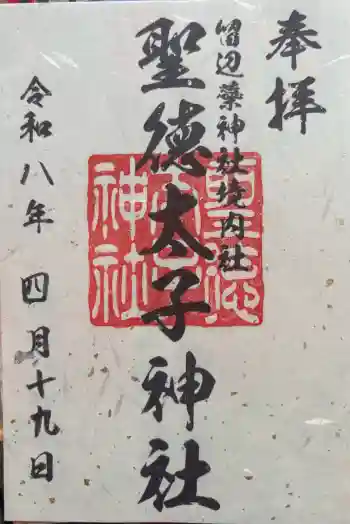 奉拝
留辺蘂神社境内社
聖徳太子神社
令和八年 四月十九日
聖徳太子神社